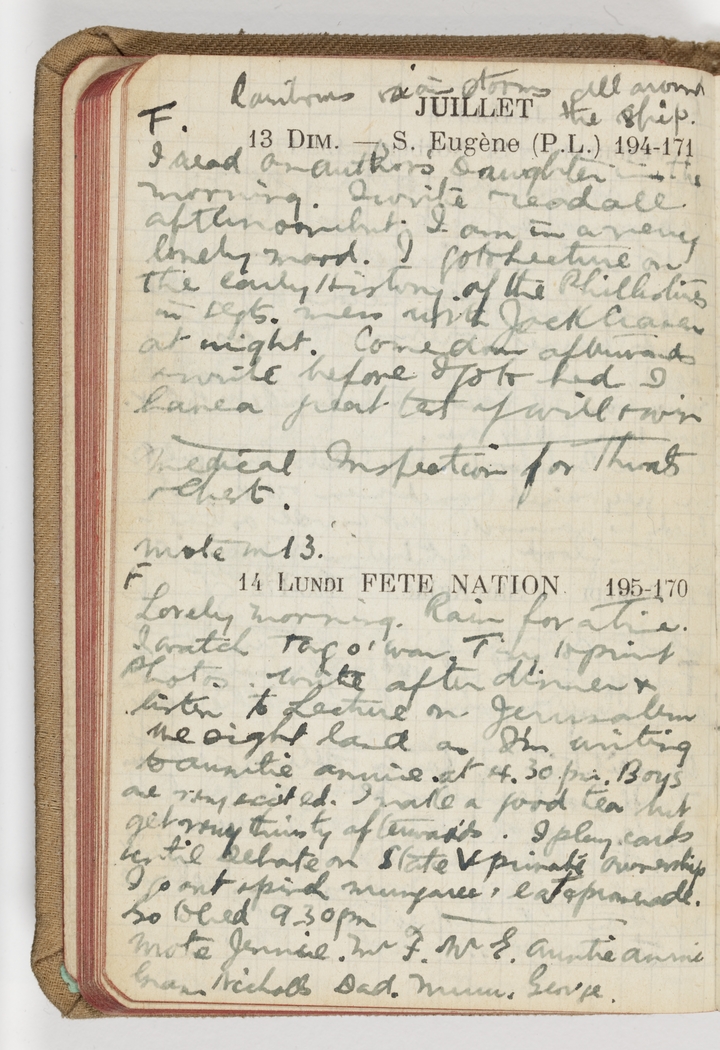 rain storms all around
JUILLET the ship.
F.
13 DIM. — S. Eugène (P.L.) 194-171
I read an authors Daughter in the
morning. I write & read all
afternoon but I am in a very
lonely mood. I go to Lecture on
the early History of the Phillistines
in Sgts. mess with Jack
at night. Come down afterwards
& write before I go to bed I
have a great test of will & win
Medical Inspection for Throats
& Chest.
wrote m 13.
F
14 LUNDI FETE NATION 195-170
Lovely morning. Rain for a time.
I watch Tug o' war. Try to print
Photos. write after dinner &
listen to Lecture on Jerusalem
We sight land as I'm writing
to auntie annie at 4.30 pm. Boys
are very excited. I make a good tea but
get very thirsty afterwards. I play cards
until Debate on State V private ownership
I go out & eat & promenade.
Go to bed 9.30 pm
wrote Jennie. Mr F. Mr E. auntie annie
Nicholls Dad. Mum. George.